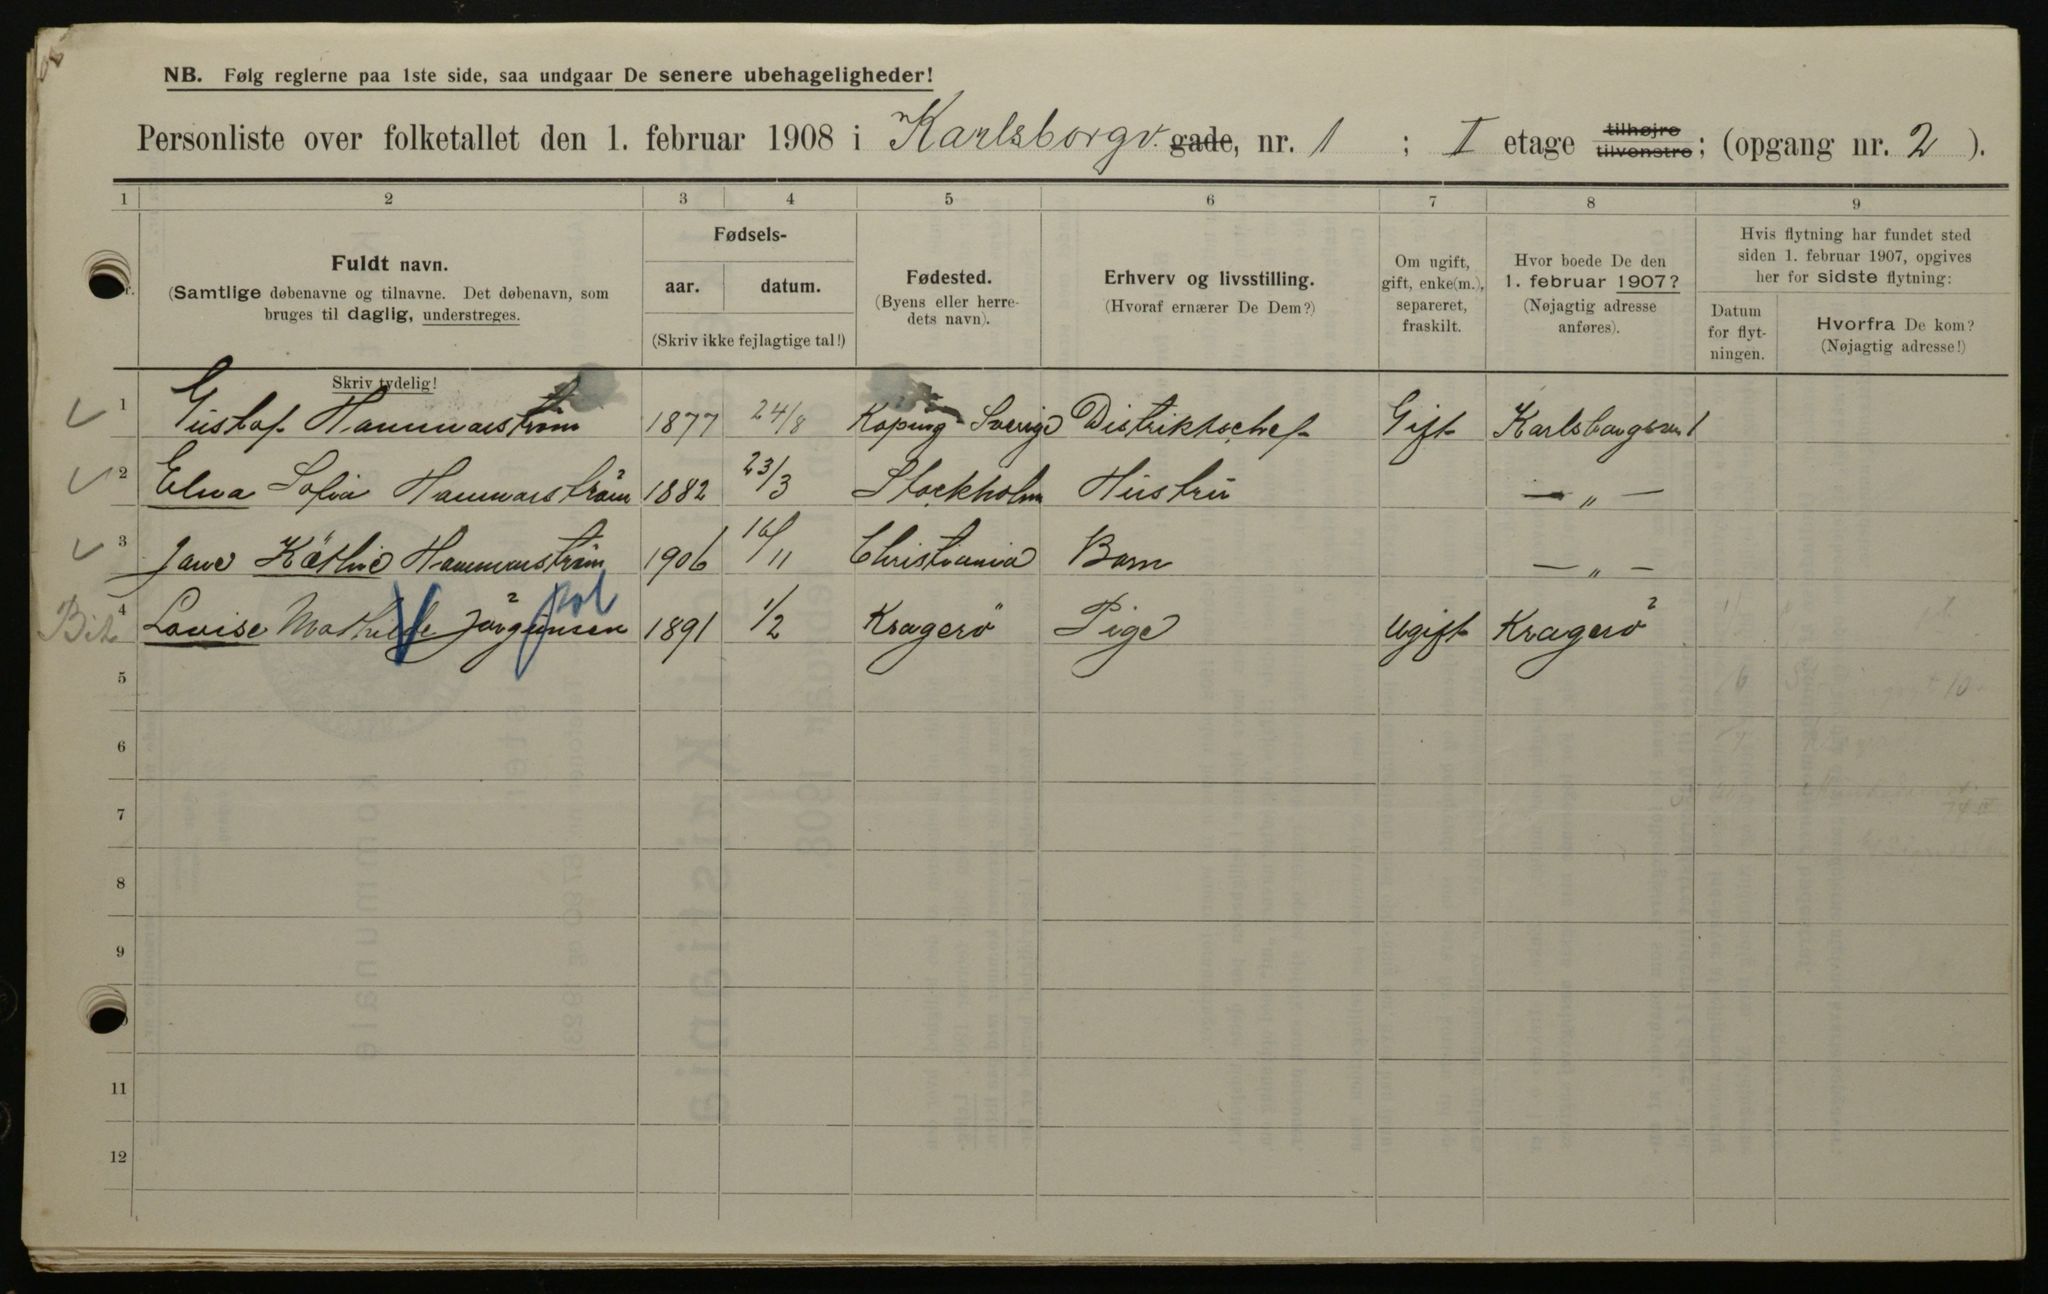 NB. Følg reglerne paa 1ste side, saa undgaar De senere ubehageligheder!
Personliste over folketallet den 1. februar 1908 i Karlsborgv. gade, nr. 1 ; I etage tilhøjre tilvenstre; (opgang nr. 2 ).
1 2 3 4 5 6 7 8 9
Fuldt navn.
(Samtlige døbenavne og tilnavne. Det døbenavn, som
bruges til daglig, understreges.
Skriv tydelig!
Fødsels-
aar. datum.
(Skriv ikke fejlagtige tal!)
Fødested.
(Byens eller herre-
dets navn).
Erhverv og livsstilling.
(Hvoraf ernærer De Dem?)
Om ugift,
gift, enke(m.),
separeret,
fraskilt.
Hvor boede De den
1. februar 1907?
(Nøjagtig adresse
anføres).
Hvis flytning har fundet sted
siden 1. februar 1907, opgives
her for sidste flytning:
Datum
for flyt-
ningen.
Hvorfra De kom?
(Nøjagtig adresse!)
1 Gustaf Hammarström 1877 24/8 Köping Sverige Distriktschef Gift Karlsborgsv 1
2 Elna Sofia Hammarström 1882 23/3 Stockholm Hustru — „ —
3 Jane Käthie Hammarström 1906 16/11 Christiania Barn — „ —
4 Lovise Mathilde Jörgensen 1891 1/2 Kragerö Pige Ugift Kragerö
5
6
7
8
9
11
12